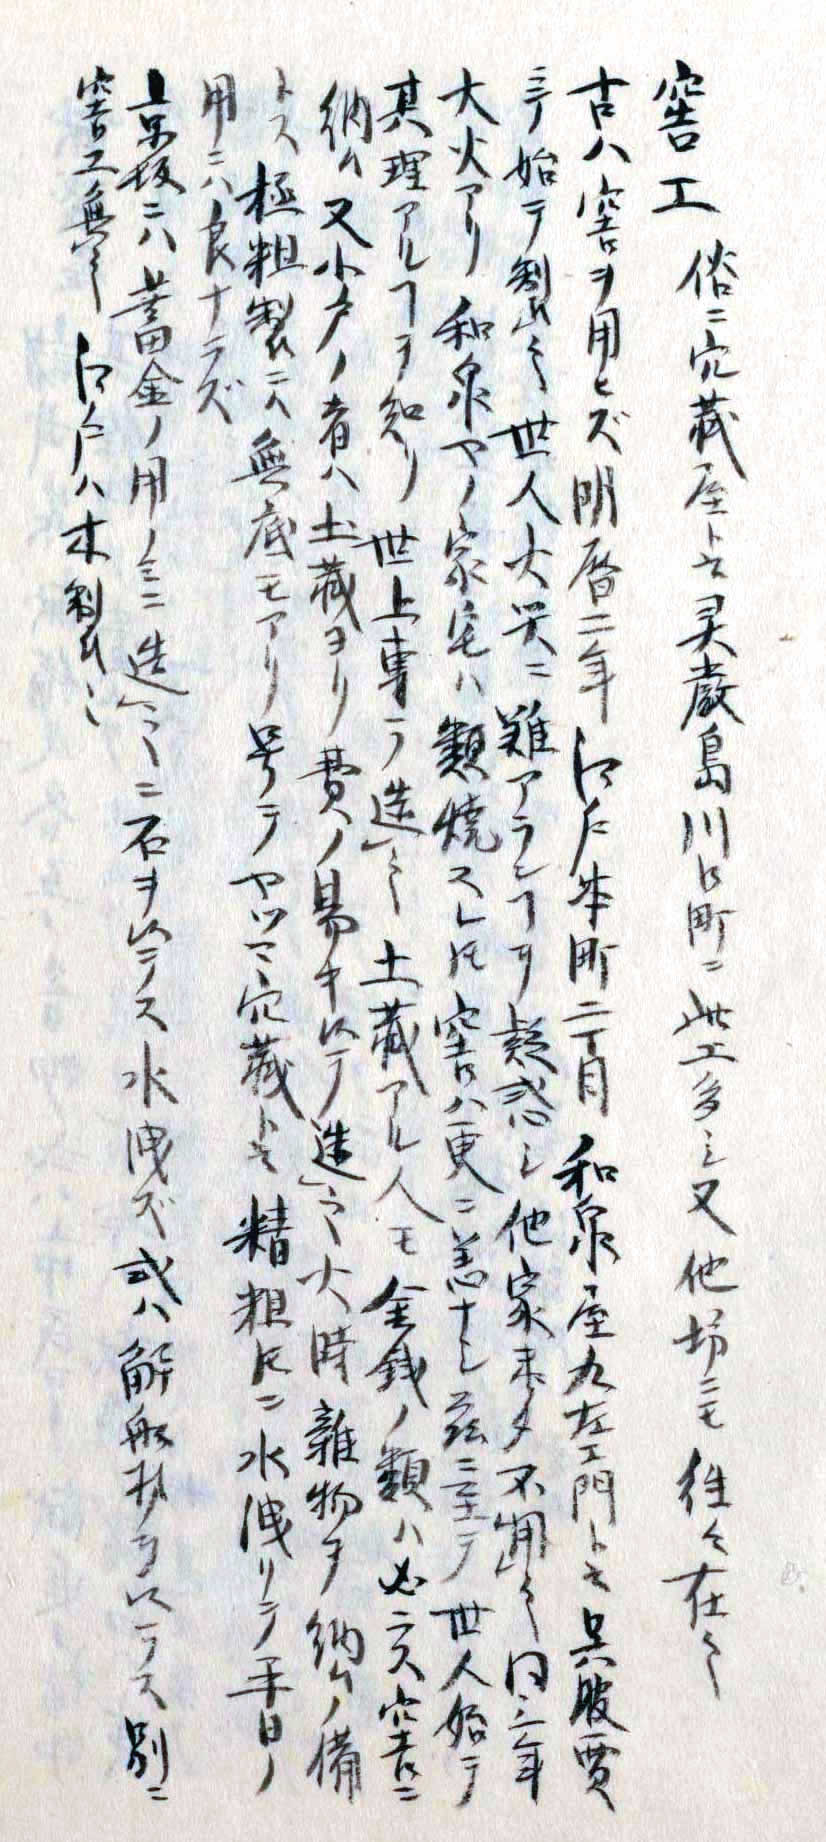 窖工 俗ニ穴蔵屋ト云灵巌島川口町ニ此工多シ又他坊ニモ往々在之
古ハ窖ヲ用ヒズ明暦二年江戸本町二丁目和泉屋九左エ門ト云呉服賈
ニテ始テ製之世人火災ニ難アランヿヲ疑惑シ他家未タ不用之同三年
大火アリ和泉ヤノ家宅ハ類焼スレ𪜈窖ハ更ニ恙ナシ茲ニ至テ世人始テ
其理アルヿヲ知リ世上専ラ造之土蔵アル人モ金銭ノ類ハ必ス穴窖ニ
納ム又小戸ノ者ハ土蔵ヨリ費ノ易キ以テ造之火時雑物ヲ納ムノ備
トス極粗製ニハ無底モアリ号テヤツマ穴蔵ト云精粗𪜈ニ水洩リテ平日ノ
用ニハ良ナラズ
京坂ニハ蓄金ノ用ノミニ造之ニ石ヲ以テス水洩ズ或ハ解船材ヲ以テス別ニ
窖工無之江戸ハ木製也